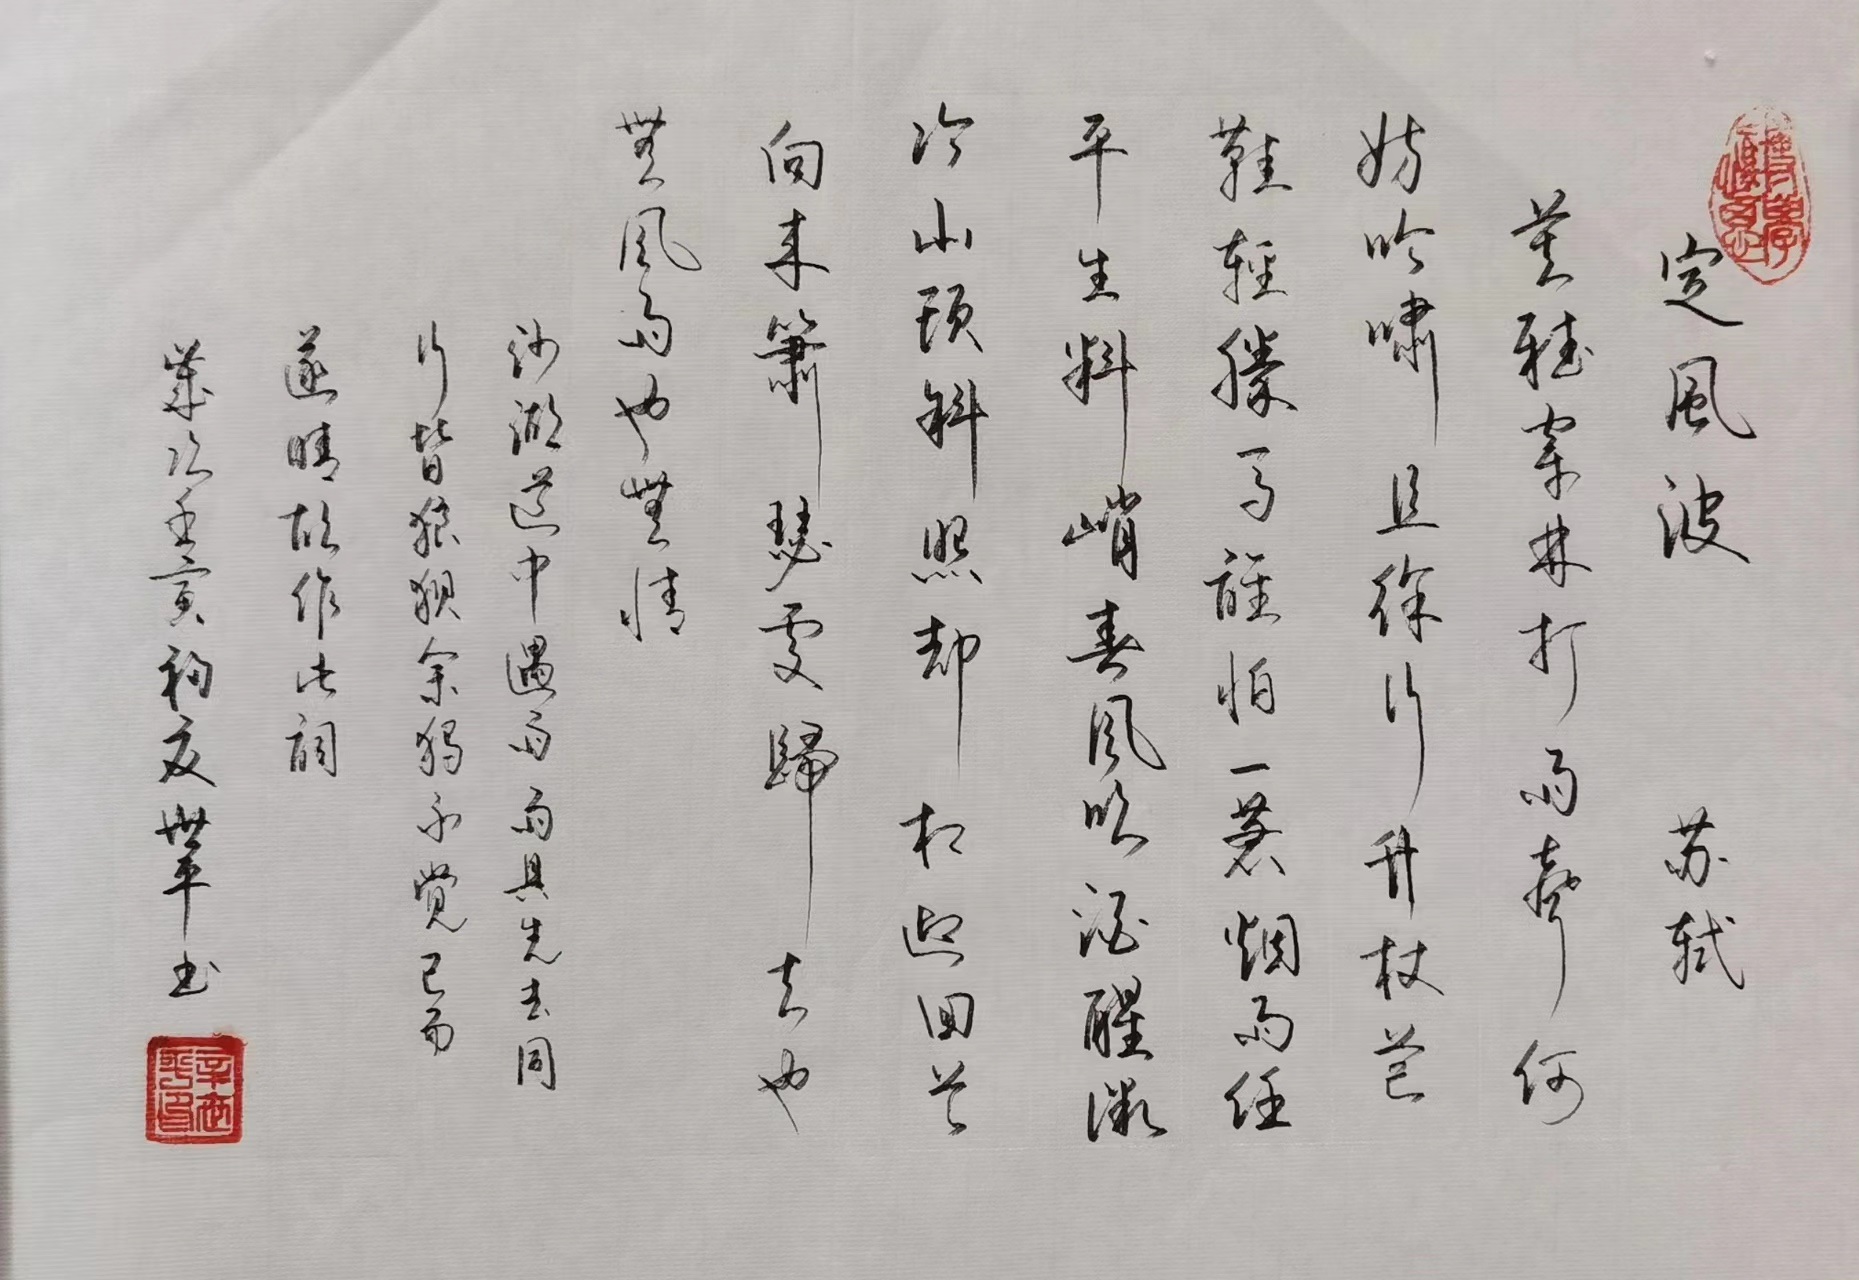 博學慎思
定風波 苏轼
莫聽穿林打雨聲何
妨吟嘯且徐行竹杖芒
鞋輕勝馬誰怕一蓑烟雨任
平生料峭春風吹酒醒微
冷山頭斜照却相迎回首
向来蕭瑟處歸去也
無風雨也無情
沙湖道中遇雨雨具先去同
行皆狼狽余獨不覺已而
遂晴故作此詞
歲次壬寅初夏世平书
辛世平印